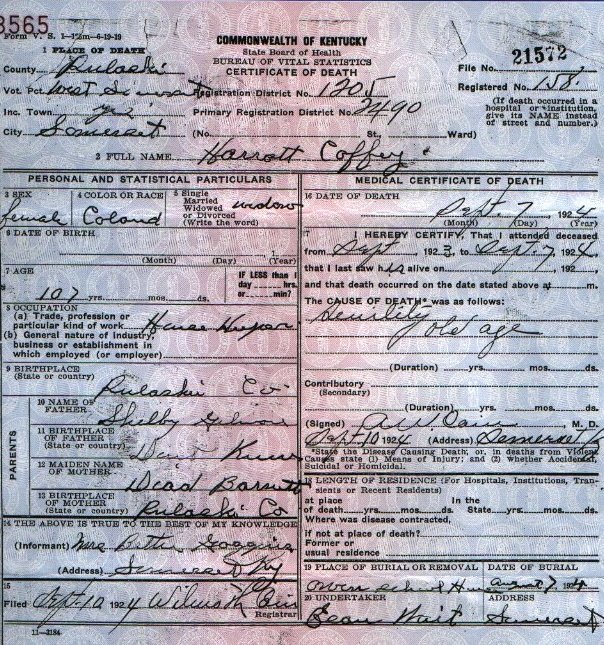 3565
Form V. S. 1—125m—6-19-19
COMMONWEALTH OF KENTUCKY
State Board of Health
BUREAU OF VITAL STATISTICS
CERTIFICATE OF DEATH
1 PLACE OF DEATH
County Pulaski
Vot. Pct. West Somerset
Inc. Town
City Somerset
Registration District No. 1205
Primary Registration District No. 2490
(No. St., Ward)
File No. 21572
Registered No. 158
(If death occurred in a
hospital or institution,
give its NAME instead
of street and number.)
2 FULL NAME Harrott Coffey
PERSONAL AND STATISTICAL PARTICULARS
3 SEX
female
4 COLOR OR RACE
Colord
5 Single
Married
Widowed
or Divorced
(Write the word)
widow
6 DATE OF BIRTH
(Month) (Day) (Year)
7 AGE
107 yrs. mos. ds.
IF LESS than 1
day hrs.
or min?
8 OCCUPATION
(a) Trade, profession or
particular kind of work House Keeper
(b) General nature of industry,
business or establishment in
which employed (or employer)
9 BIRTHPLACE
(State or country)
Pulaski Co
PARENTS
10 NAME OF
FATHER
Shelby
11 BIRTHPLACE
OF FATHER
(State or country)
Dont Know
12 MAIDEN NAME
OF MOTHER
Barnett
13 BIRTHPLACE
OF MOTHER
(State or country)
Pulaski Co
14 THE ABOVE IS TRUE TO THE BEST OF MY KNOWLEDGE
(Informant) Mrs.
(Address) Somerset Ky
15
Filed Sept-10 1924
Registrar
11—3184
MEDICAL CERTIFICATE OF DEATH
16 DATE OF DEATH
Sept. 7, 1924
(Month) (Day) (Year)
17 I HEREBY CERTIFY, That I attended deceased
from Sept, 1923 to Sept. 7, 1924
that I last saw h alive on , 192
and that death occurred on the date stated above at m.
The CAUSE OF DEATH* was as follows:
Senility
old age
(Duration) yrs. mos. ds.
Contributory
(Secondary)
(Duration) yrs. mos. ds.
(Signed) A.W. Cain M. D.
Sept-10 1924 (Address) Somerset
*State the Disease Causing Death; or, in deaths from Violent
Causes state (1) Means of Injury; and (2) whether Accidental,
Suicidal or Homicidal.
18 LENGTH OF RESIDENCE (For Hospitals, Institutions, Tran-
sients or Recent Residents)
At place In the
of death yrs. mos. ds. State yrs. mos. ds.
Where was disease contracted,
if not at place of death?
Former or
usual residence
19 PLACE OF BURIAL OR REMOVAL
DATE OF BURIAL
August 7, 1924
20 UNDERTAKER
ADDRESS
Somerset